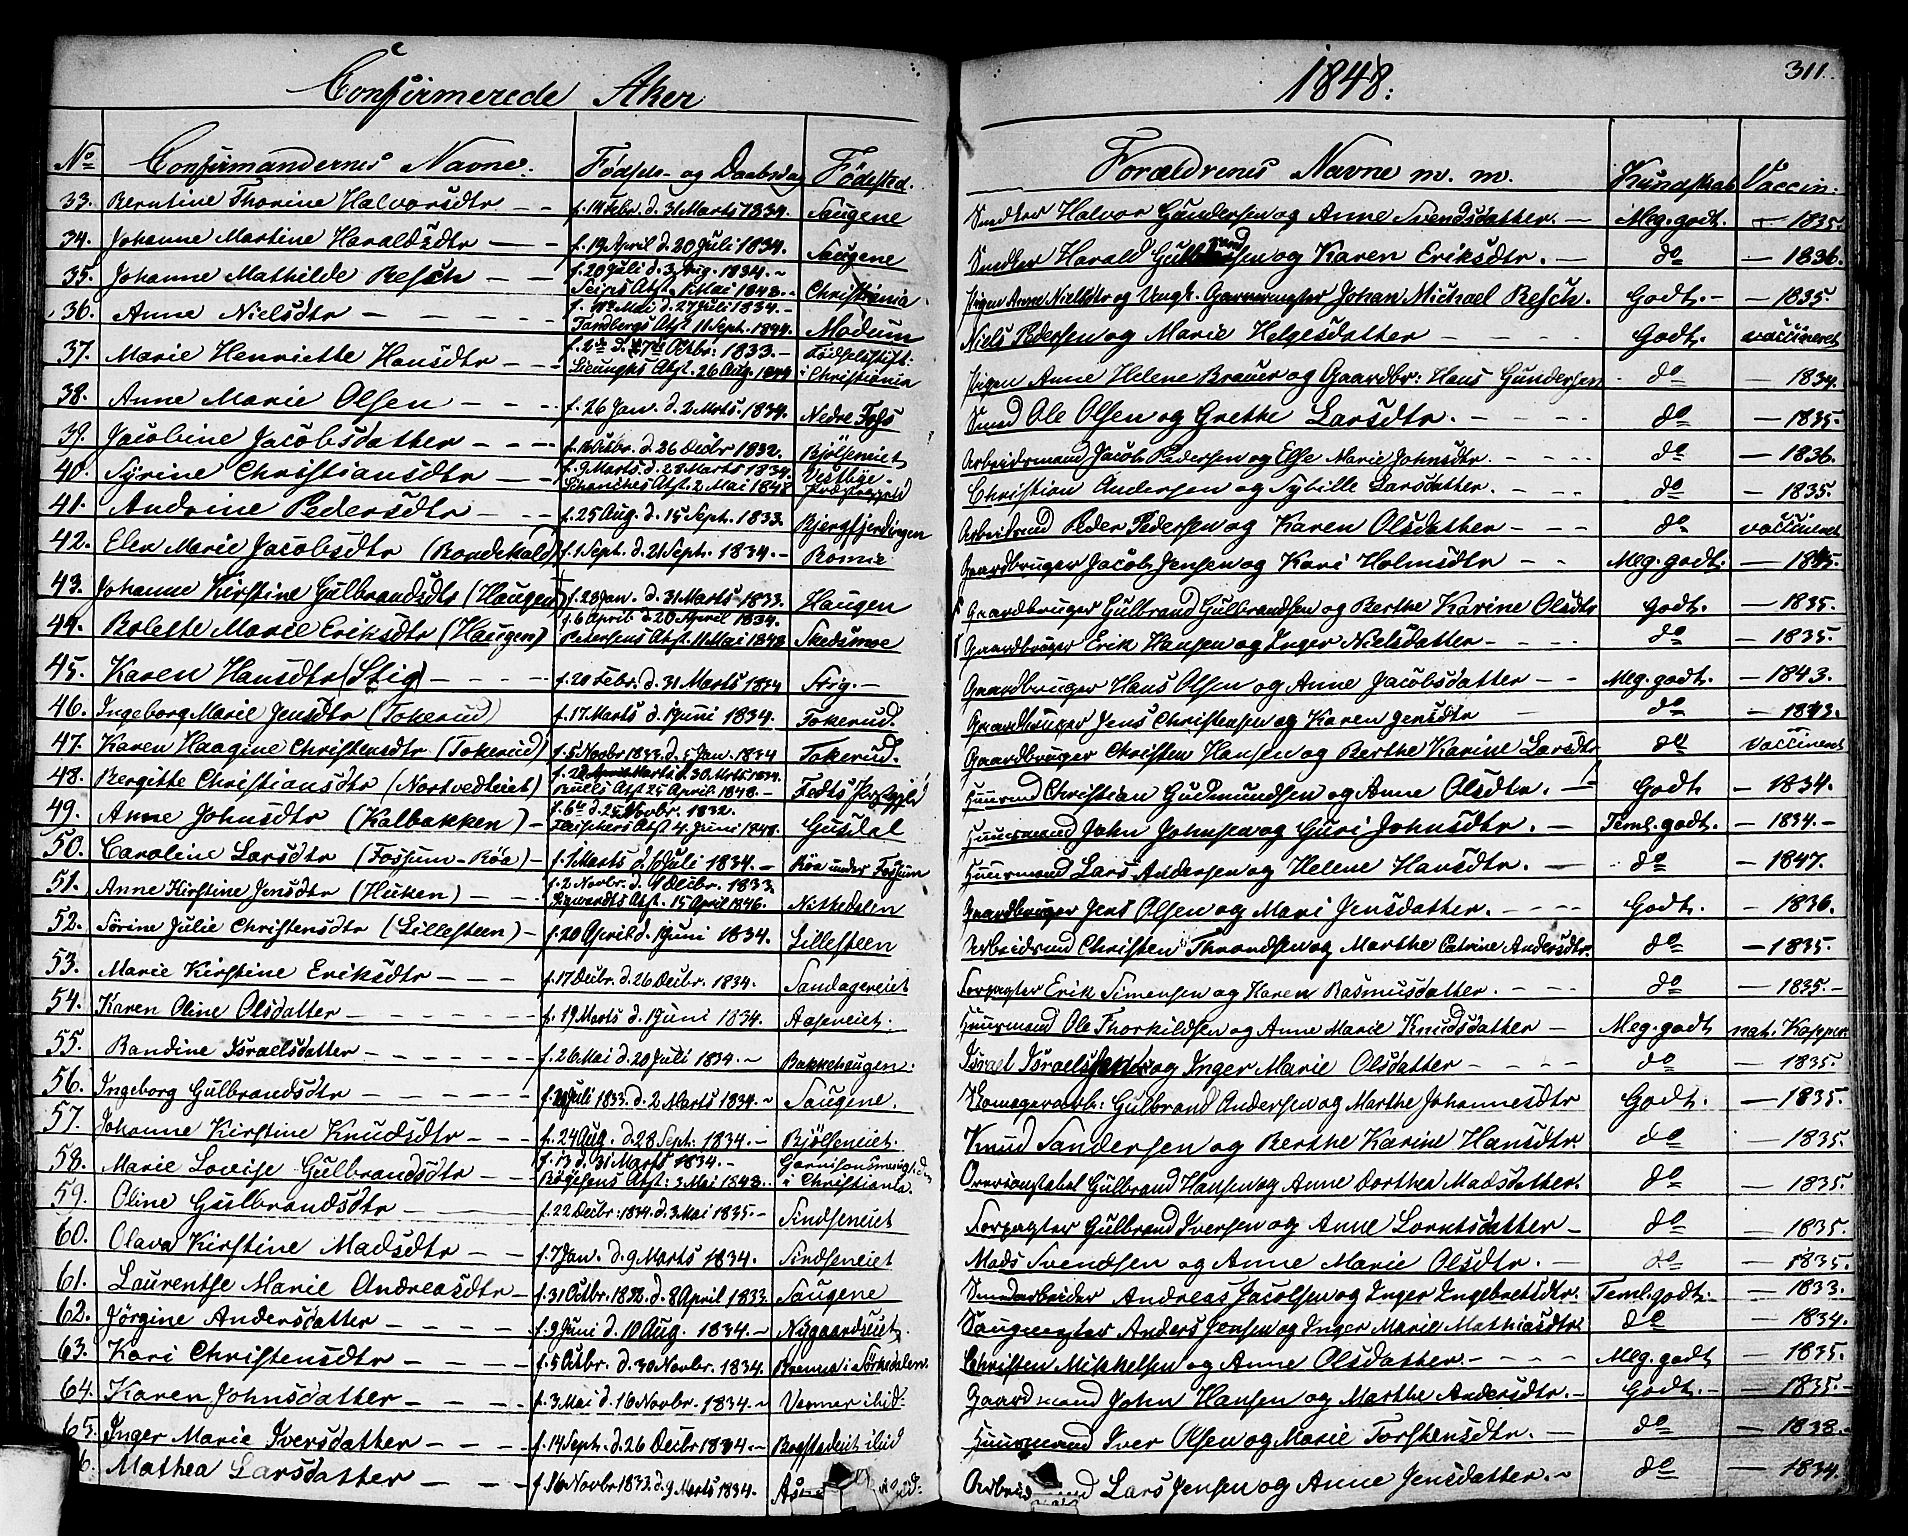 Confirmerede Aker
1848.
311.
No Confirmandernes Navne. Fødsels- og Daabsdag Fødested. Forældrenes Navne m. m. Kundskab Vaccin.
33. Berntine Thorine Halvorsdtr f. 14 Febr. d. 31 Marts 1834. Saugene Smedker Halvor Gundersen og Anne Svendsdatter. Meg. godt. 1835.
34. Johanne Martine Haraldsdtr f. 19 April d. 20 Juli 1834. Saugene Harald og Karen Eriksdtr. do 1836.
35. Johanne Mathilde Resch f. 20 Juli d. 3 Aug. 1834.
Attst. 1 Mai 1848. Christiania Pigen Anne Nielsdtr og Ungk. Johan Michael Resch. Godt. 1835.
36. Anne Nielsdtr Mai d. 27 Juli 1834.
Tandbergs Attst 11 Sept. 1844. Modum Niels Pedersen og Marie Helgesdatter Godt. vaccineret
37. Marie Henriette Hansdtr Octbr: 1833.
Attst. 26 Aug. Fødselsstift:
i Christiania Pigen Anne Helene Brauer og Gaardbr: Hans Gundersen do 1834.
38. Anne Marie Olsen f. 26 Jan. d. 2 Mrts. 1834. Nedre Foss Smed Ole Olsen og Grethe Larsdtr. do 1835.
39. Jacobine Jacobsdatter d. 26 Decbr 1832. Bjølseneiet Arbeidsmand Jacob Pedersen og Else Marie Johnsdtr. do 1836.
40. Syrine Christiansdtr f. 9 Marts d. 28 Marts 1834.
Attst. 2 Mai 1848 Vestbye
Præstegjeld Christian Andersen og Sybille Larsdatter. do 1835.
41. Andrine Pedersdtr f. 25 Aug. d. 15 Sept. 1833. Bjergfjerdingen Arbeidsmd Peder Pedersen og Karen Olsdatter do vaccineret
42. Elen Marie Jacobsdtr f. 1 Sept. d. 21 Sept. 1834. Romie Gaardbruger Jacob Jensen og Kari Holmsdtr Meg. godt.
43. Johanne Kirstine Gulbrandsdtr (Haugen) f. 28 Jan. d. 31 Marts 1833. Haugen Gaardbruger Gulbrand Gulbrandsen og Berthe Karine Olsdtr Godt. 1835.
44. Bolette Marie Eriksdtr (Haugen) f. 6 April d. 20 April 1834.
Petersens Attst. 11 Mai 1848 Skedsmoe Gaardbruger Erik Hansen og Inger Nielsdatter do 1835.
45. Karen Hansdtr (Stig) f. 20 Febr. d. 31 Marts 1834 Stig. Gaardbruger Hans Olsen og Anne Jacobsdatter Meg. godt. 1843.
46. Ingeborg Marie Jensdtr (Tokerud) f. 17 Marts d. 1 Juni 1834. Tokerud. Gaardbruger Jens Christensen og Karen Jensdtr do 1843.
47. Karen Haagine Christensdtr (Tokerud) f. 5 Novbr 1833. d. 5 Jan. 1834 Tokerud. Gaardbruger Christen Hansen og Berthe Karine Larsdtr do vaccineret
48. Bergitte Christiansdtr (Nortvedteiet) Marts d. 30 Mrts 1834.
Attst 25 April 1848. Huusmd Christian Gudmundsen og Anne Olsdtr. Godt 1834.
49. Anne Johnsdtr (Kalbakken) Novbr. 1832.
Attst 4 Juni 1848. Gusdal Huusmand John Johnsen og Guri Johnsdtr. Teml. godt. 1834.
50. Caroline Larsdtr (Fossum-Røa) f. 1 Marts d. Juli 1834. Røa under Fossum Huusmand Lars Andersen og Helene Hansdtr. do 1847.
51. Anne Kirstine Jensdtr (Huken) f. 2 Novbr. d. Decbr. 1833.
Attst. 15 April 1846. Nittedalen Gaardbruger Jens Olsen og Mari Jensdatter. Godt. 1836.
52. Sørine Julie Christensdtr (Lillesteen) f. 20 April d. 1 Juni 1834. Lillesteen Arbeidsmd Christen Throndsen og Marthe Catrine Andersdtr. do 1835.
53. Marie Kirstine Eriksdtr f. 17 Decbr. d. 26 Decbr. 1834. Sandagereiet Forpagter Erik Simensen og Karen Rasmusdatter. do 1835.
54. Karen Oline Olsdatter f. 19 Marts d. 1 Juni 1834. Aaseneiet. Huusmand Ole Thorkildsen og Anne Marie Knudsdatter Meg. godt nat. Kopper
55. Randine Israelsdatter f. 26 Mai d. 20 Juli 1834. Bakkehaugen. Israel Israelsen og Inger Marie Olsdatter do 1835.
56. Ingeborg Gulbrandsdtr Juli 1833. d. 2 Marts 1834. Saugene. Gulbrand Andersen og Marthe Johannesdtr Godt. 1835.
57. Johanne Kirstine Knudsdtr f. 24 Aug. d. 28 Sept: 1834. Bjølseneiet. Knud Sandersen og Berthe Karine Hansdtr. do 1835.
58. Marie Lovise Gulbrandsdtr f. 13 d. 31 Marts 1834.
Attst: 3 Mai 1848. Garnisonsmenighd.
i Christiania. Overconstabel Gulbrand Hansen og Anne Dorthea Madsdatter. do 1835.
59. Oline Gulbrandsdtr f. 22 Decbr: 1834. d. 3 Mai 1835. Sindseneiet Forpagter Gulbrand Iversen og Anne Lorntsdatter do 1835.
60. Olava Kirstine Madsdtr f. 7 Jan. d. 9 Marts 1834. Sindseneiet Mads Svendsen og Anne Marie Olsdtr. do 1835.
61. Laurentse Marie Andreasdtr f. 31 Octbr. 1832. d. 8 April 1833. Saugene Andreas Jacobsen og Inger Ingebretsdtr. Teml. godt. 1833.
62. Jørgine Andersdatter f. 9 Juni d. 10 Aug. 1834. Nygaardseiet. Saugmester Anders Jensen og Inger Marie Mathiasdtr do 1834.
63. Kari Christensdtr f. 5 Octbr. d. 30 Novbr. 1834. i Sørkedalen. Christen Mikkelsen og Anne Olsdatter. Meg. godt 1835.
64. Karen Johnsdatter f. 3 Mai d. 16 Novbr. 1834. ibid. Gaardmand John Hansen og Marthe Andersdtr. Godt. 1835.
65. Inger Marie Iversdatter f. 14 Sept. d. 26 Decbr 1834. ibid Huusmand Iver Olsen og Marie Torstensdtr. do 1838.
6. Mathea Larsdatter f. 16 Novbr 1833. d. 9 Marts 1834. Lars Jensen og Anne Jensdatter. do 1834.